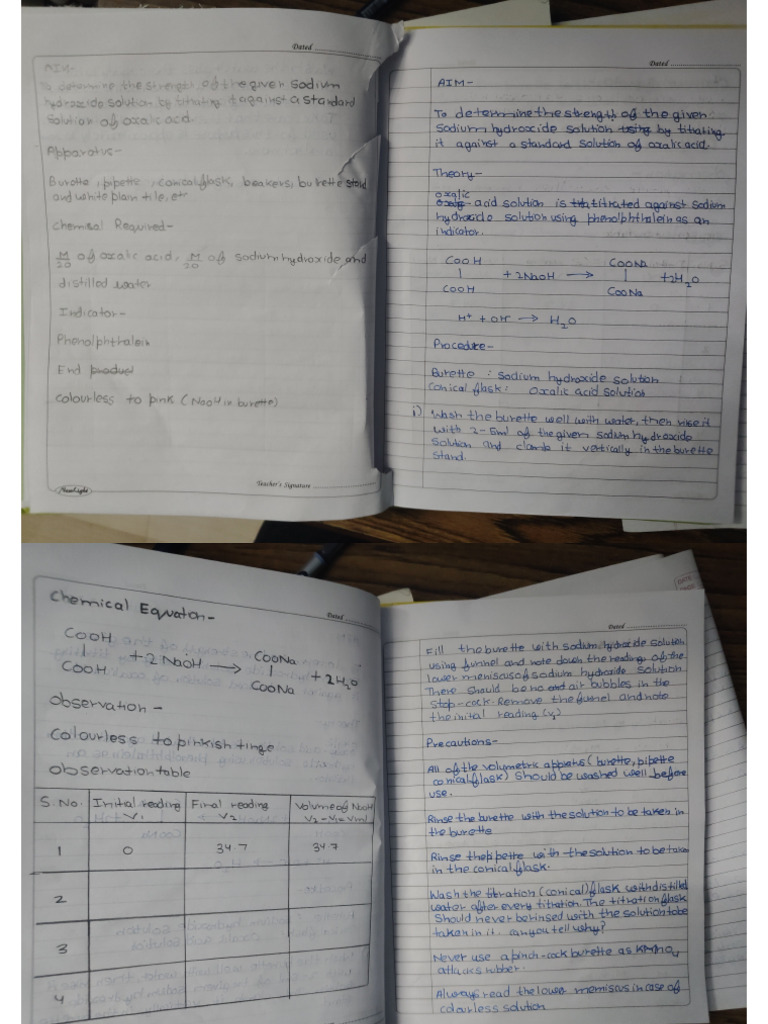 Dated
AIM-
To determine the strength of the given Sodium
hydroxide solution by titrating t against a standard
solution of oxalic acid.
Apparatus-
Burette, pipette, conical flask, beakers, burette stand
and white plain tile, etc
Chemical Required-
M/20 of oxalic acid, M/20 of sodium hydroxide and
distilled water
Indicator-
Phenolphthalein
End product
colourless to pink (NaOH in burette)
Teacher's Signature
Dated
AIM-
To determine the strength of the given
Sodium hydroxide solution using by titrating
it against a standard solution of oxalic acid
Theory-
oxalic
acid solution is titrated against sodium
hydroxide solution using phenolphthalein as an
indicator.
COOH COONa
| + 2NaOH → | + 2H2O
COOH COONa
H+ + OH- → H2O
Procedure-
Burette : sodium hydroxide solution
Conical flask: Oxalic acid solution
i) Wash the burette well with water, then rise it
with 2-5ml of the given sodium hydroxide
solution and clamb it vertically in the burette
stand.
Chemical Equation-
Dated
COOH COONa
| + 2NaOH → | + 2H2O
COOH COONa
Observation -
Colourless to pinkish tinge
Observation table
S.No. Initial reading Final reading Volume of NaOH
V1 V2 V2-V1=Vml
1 0 34.7 34.7
2
3
4
DATE
Dated
Fill the burette with sodium hydroxide solution
using funnel and note down the reading of the
lower meniscus of sodium hydroxide solution
There should be no air bubbles in the
stop-cock. Remove the funnel and note
the inital reading (V1)
Precautions-
All of the volumetric appratus (burette, pipette
conical flask) should be washed well before
use.
Rinse the burette with the solution to be taken in
the burette
Rinse the pipette with the solution to be taken
in the conical flask.
Wash the titration (conical) flask with distilled
water after every titration. The titration flask
Should never be rinsed with the solution to be
taken in it. can you tell why?
Never use a pinch-cock burette as KMnO4
attacks rubber.
Always read the lower memiscus in case of
colourless solution